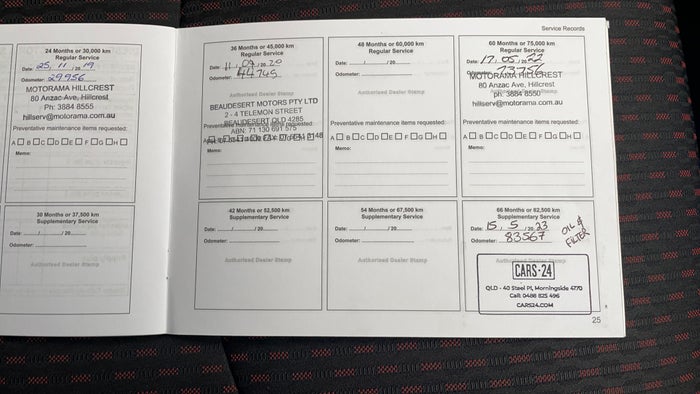 Service Records
24 Months or 30,000 km
Regular Service
Date: 25 / 11 / 20 19
Odometer: 29956
MOTORAMA HILLCREST
80 Anzac Ave, Hillcrest
Ph: 3884 8555
hillserv@motorama.com.au
Preventative maintenance items requested:
A B C D E F G H
Memo:
30 Months or 37,500 km
Supplementary Service
Date: / / 20
Odometer:
Authorised Dealer Stamp
36 Months or 45,000 km
Regular Service
Date: 11 / 09 / 20 20
Odometer: 44745
Authorised Dealer Stamp
BEAUDESERT MOTORS PTY LTD
2 - 4 TELEMON STREET
BEAUDESERT QLD 4285
ABN: 71 130 691 575
Preventative maintenance items requested:
Memo:
48 Months or 60,000 km
Regular Service
Date: / / 20
Odometer:
Authorised Dealer Stamp
Preventative maintenance items requested:
A B C D E F G H
Memo:
60 Months or 75,000 km
Regular Service
Date: 17 / 05 / 20 22
Odometer: 73756
MOTORAMA HILLCREST
80 Anzac Ave, Hillcrest
Authorised Dealer Stamp
Ph: 3884 8550
hillserv@motorama.com.au
Preventative maintenance items requested:
A B C D E F G H
Memo:
42 Months or 52,500 km
Supplementary Service
Date: / / 20
Odometer:
Authorised Dealer Stamp
54 Months or 67,500 km
Supplementary Service
Date: / / 20
Odometer:
Authorised Dealer Stamp
66 Months or 82,500 km
Supplementary Service
Date: 15 / 5 / 20 23
Odometer: 83567
OIL &
FILTER
Authorised Dealer Stamp
CARS·24
QLD - 40 Steel Pl, Morningside 4170
Call: 0488 825 496
CARS24.COM
25